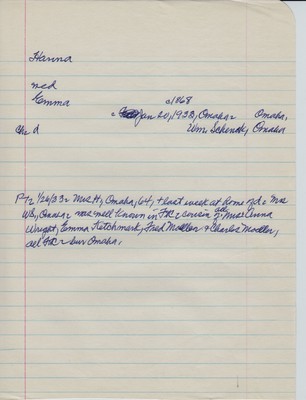 Hanna
med
Emma
c1868
c Jan 20, 1933, Omaha Omaha,
Ch: d Wm. Schensky, Omaha
P+2 1/26/33: Mrs H, Omaha, 64, + last week at home of d: Mrs
WS, Omaha: was well known in FtC: cousin of: Mrs Anna
Wright, Emma Ketchmark, Fred Moeller & Charles Moeller,
all FtC: bur Omaha.